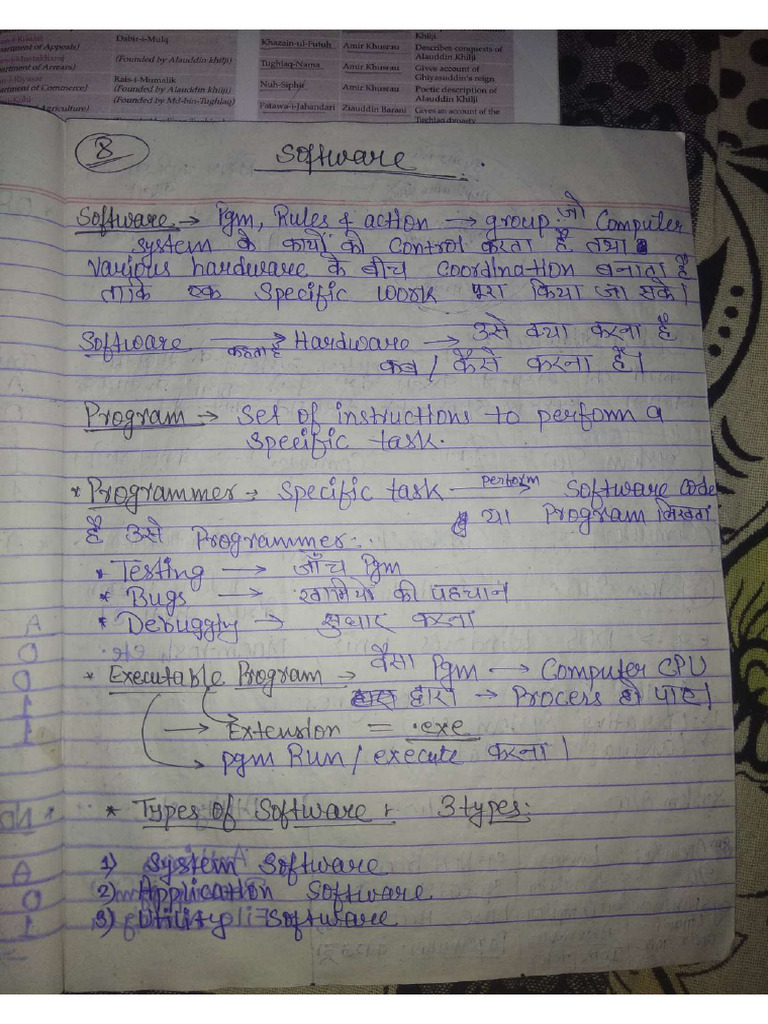 Dabir-i-Mulq
artment of Appeals)
(Founded by Alauddin khilji)
artment of Arrears)
Rais-i-Mumalik
artment of Commerce)
(Founded by Alauddin khilji)
(Founded by Md-bin-Tughlaq)
Agriculture)
Khilji
Khazain-ul-Futuh Amir Khusrau Describes conquests of Alauddin Khilji
Tughlaq-Nama Amir Khusrau Gives account of Ghiyasuddin's reign
Nuh-Siphir Amir Khusrau Poetic description of Alauddin Khilji
Fatawa-i-Jahandari Ziauddin Barani Gives an account of the Tughlaq dynasty
8 Software
Software → Pgm, Rules & action → group जो Computer
system के कार्यो को control करता है तथा
various hardware के बीच coordination बनाता है
ताकि एक specific work पूरा किया जा सके।
Software → कहता है Hardware → उसे क्या करना है
कब / कैसे करना है।
Program → Set of instructions to perform a
specific task.
* Programmer → Specific task perform → Software code
या Program लिखता
है उसे Programmer:.
* Testing → जाँच Pgm
* Bugs → खामियो की पहचान
* Debuggly → सुधार करना
* Executable Program → वैसा Pgm → Computer CPU
द्वारा → Process हो पाए।
→ Extension = .exe
→ pgm Run / execute करना।
* Types of Software : 3 types:
1) System Software
2) Application Software
3) Utility Software